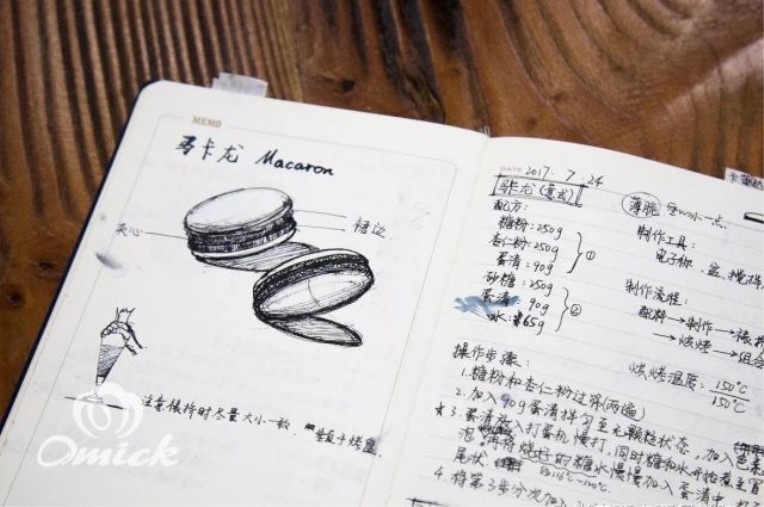 MEMO
马卡龙 Macaron
夹心
裙边
注意裱挤时尽量大小一致
烤盘
Omick
DATE 2017. 7. 24
马卡龙(意式)
配方:
糖粉:250g
杏仁粉:250g
蛋清:90g
①
砂糖:250g
蛋清:90g
水:65g
②
操作步骤:
1.糖粉和杏仁粉过筛(两遍)
2.加入90g蛋清拌匀至无颗粒状态,加入色素
★3.蛋清放入打蛋机慢打,同时糖和水开始煮至冒
泡,再将烧的糖水慢慢加入蛋清中,打
尾状.
4.将第3步分次加入
薄脆
小一点.
制作工具:
电子称、盆、搅拌
制作流程:
配料→制作→裱挤
→烘烤→组合
烘烤温度:150℃
150℃